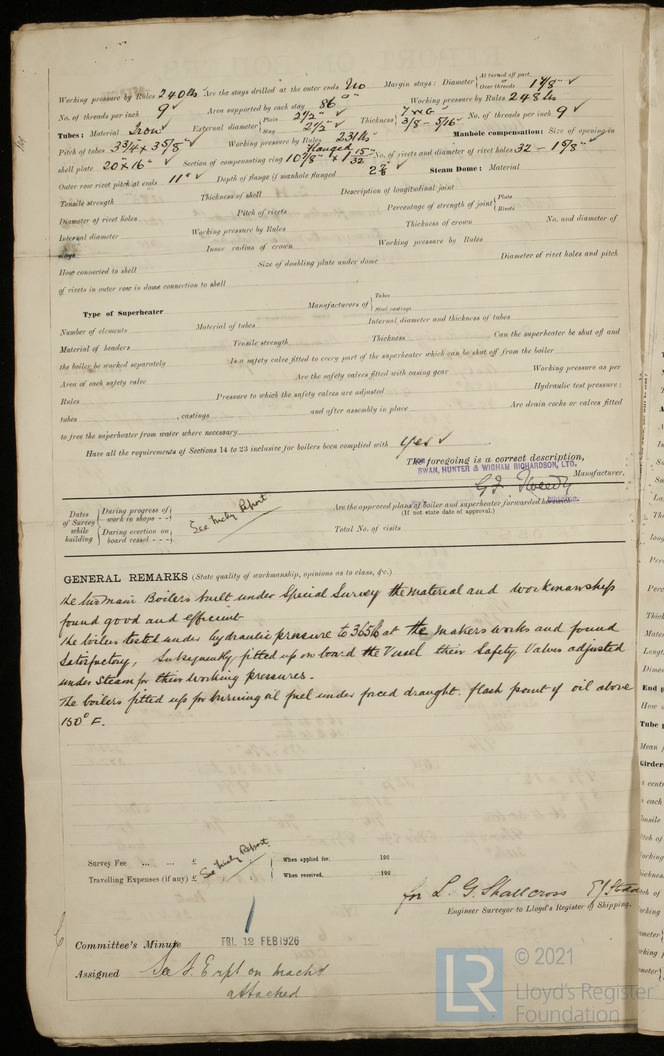 Working pressure by Rules 240 lbs Are the stays drilled at the outer ends No Margin stays: Diameter { At turned off part, Over threads 1 7/8" ✓
No. of threads per inch 9 ✓ Area supported by each stay 86 □" Working pressure by Rules 248 lbs
Tubes: Material Iron ✓ External diameter { Plain 2 1/2" ✓ Stay 2 1/2" ✓ Thickness { 7 WG ✓ 3/8 - 5/16" ✓ No. of threads per inch 9 ✓
Pitch of tubes 3 3/4 x 3 5/8" ✓ Working pressure by Rules 231 lbs Manhole compensation: Size of opening in
shell plate 20" x 16" ✓ Section of compensating ring Flanged 10 7/8" x 1 15/32" No. of rivets and diameter of rivet holes 32 - 1 5/8" ✓
Outer row rivet pitch at ends 11" ✓ Depth of flange if manhole flanged Steam Dome: Material
Tensile strength Thickness of shell Description of longitudinal joint
Diameter of rivet holes Pitch of rivets Percentage of strength of joint { Plate Rivets
Internal diameter Working pressure by Rules Thickness of crown No. and diameter of
stays Inner radius of crown Working pressure by Rules
How connected to shell Size of doubling plate under dome Diameter of rivet holes and pitch
of rivets in outer row in dome connection to shell
Type of Superheater Manufacturers of { Tubes Steel castings
Number of elements Material of tubes Internal diameter and thickness of tubes
Material of headers Tensile strength Thickness Can the superheater be shut off and
the boiler be worked separately Is a safety valve fitted to every part of the superheater which can be shut off from the boiler
Area of each safety valve Are the safety valves fitted with easing gear Working pressure as per
Rules Pressure to which the safety valves are adjusted Hydraulic test pressure:
tubes , castings and after assembly in place Are drain cocks or valves fitted
to free the superheater from water where necessary
Have all the requirements of Sections 14 to 23 inclusive for boilers been complied with Yes ✓
The foregoing is a correct description,
FOR SWAN, HUNTER & WIGHAM RICHARDSON, LTD.
G. J. Tweedy Manufacturer.
DIRECTOR.
Dates of Survey while building { During progress of work in shops - - } { During erection on board vessel - - - } See Mchy Report
Are the approved plans of boiler and superheater forwarded herewith
(If not state date of approval.)
Total No. of visits
GENERAL REMARKS (State quality of workmanship, opinions as to class, &c.)
The two main Boilers built under Special Survey the material and workmanship
found good and efficient
The boilers tested under hydraulic pressure to 365 lb at the makers works and found
Satisfactory, Subsequently fitted up on board the Vessel their Safety Valves adjusted
under Steam for their working pressures.
The boilers fitted up for burning oil fuel under forced draught. flash point of oil above
150° F.
Survey Fee ... ... £ See Mchy Report When applied for, 192
Travelling Expenses (if any) £ When received, 192
for L. G. Shallcross
Engineer Surveyor to Lloyd's Register of Shipping.
Committee's Minute FRI. 12 FEB 1926
Assigned See F.E. rpt on machy
attached
LR © 2021
Lloyd's Register
Foundation